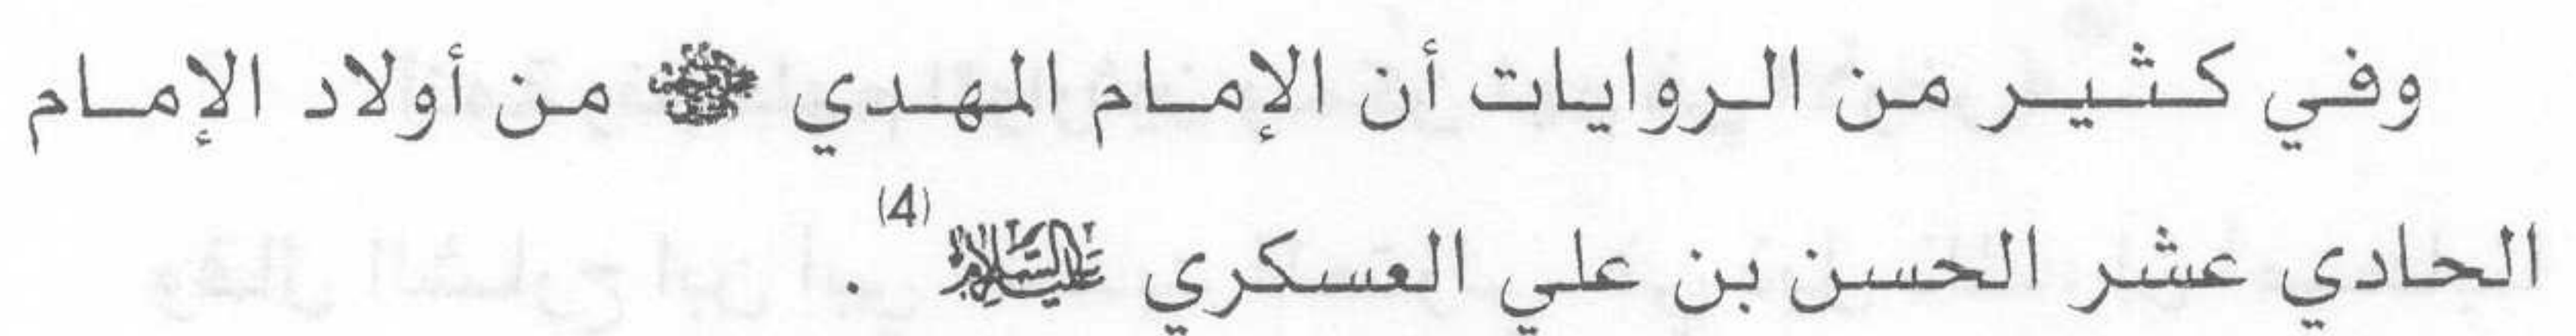 وفي كثير من الروايات أن الإمام المهدي من أولاد الإمام
الحادي عشر الحسن بن علي العسكري عليه السلام (4) .